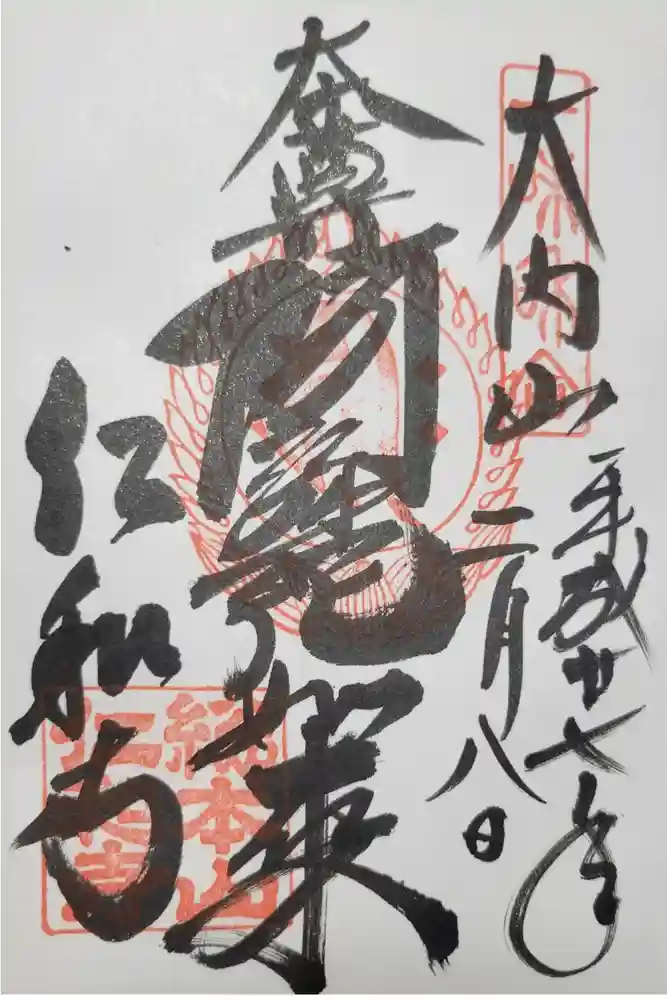 大内山
平成廿七年
二月八日
阿弥陀如来
仁和寺
総本山
仁和寺